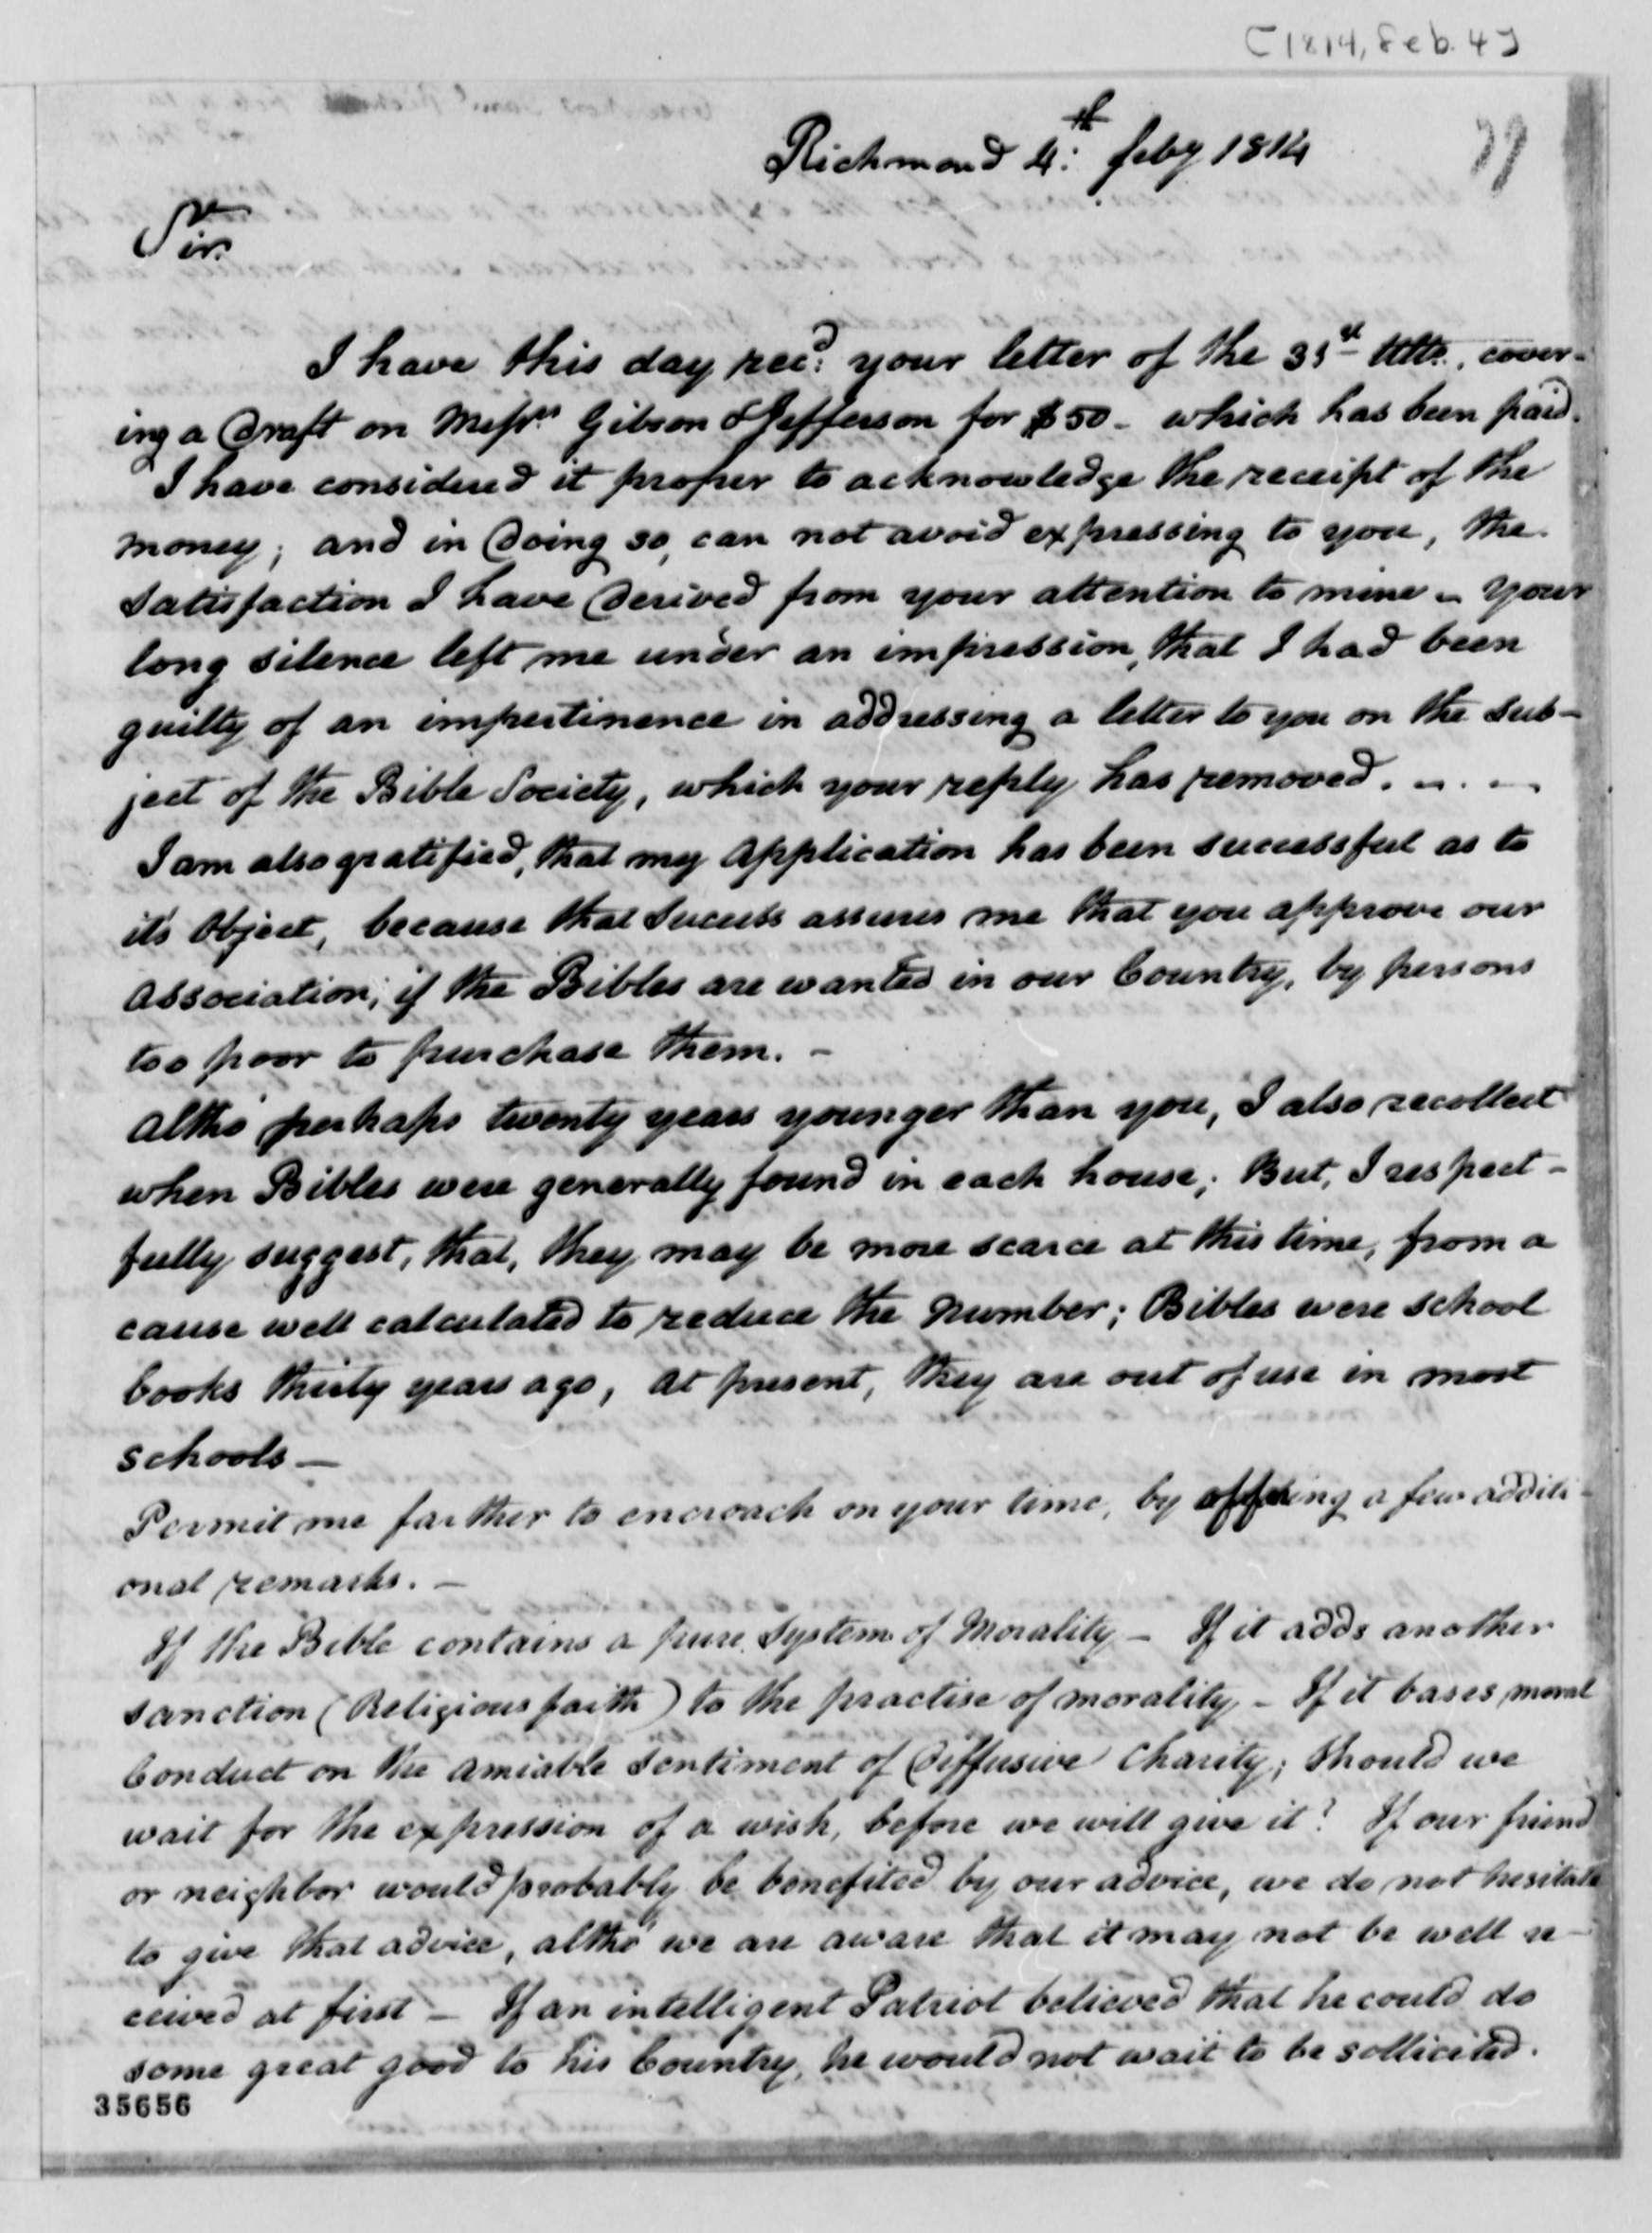 [1814, Feb. 4]
Richmond 4:th feby 1814
Sir
I have this day recd: your letter of the 31st Ulto., cover-
ing a Draft on Messrs Gibson & Jefferson for $50 - which has been paid.
I have considered it proper to acknowledge the receipt of the
money; and in Doing so, can not avoid expressing to you, the
satisfaction I have Derived from your attention to mine - Your
long silence left me under an impression, that I had been
guilty of an impertinence in addressing a letter to you on the sub-
ject of the Bible Society, which your reply has removed. - . -
I am also gratified, that my Application has been successful as to
it's Object, because that Success assures me that you approve our
Association; if the Bibles are wanted in our Country, by persons
too poor to purchase them. -
Altho' perhaps twenty years younger than you, I also recollect
when Bibles were generally found in each house; But, I respect-
fully suggest, that, they may be more scarce at this time, from a
cause well calculated to reduce the Number; Bibles were school
books thirty years ago, At present, they are out of use in most
schools —
Permit me farther to encroach on your time, by offering a few additi-
onal remarks. -
If the Bible contains a pure System of Morality - If it adds another
sanction (Religious faith) to the practise of morality - If it bases moral
Conduct on the Amiable Sentiment of Diffusive Charity; Should we
wait for the expression of a wish, before we will give it? If our friend
or neighbor would probably be benefited by our advice, we do not hesitate
to give that advice, altho' we are aware that it may not be well re-
ceived at first - If an intelligent Patriot believed that he could do
some great good to his Country, he would not wait to be sollicited.
35656